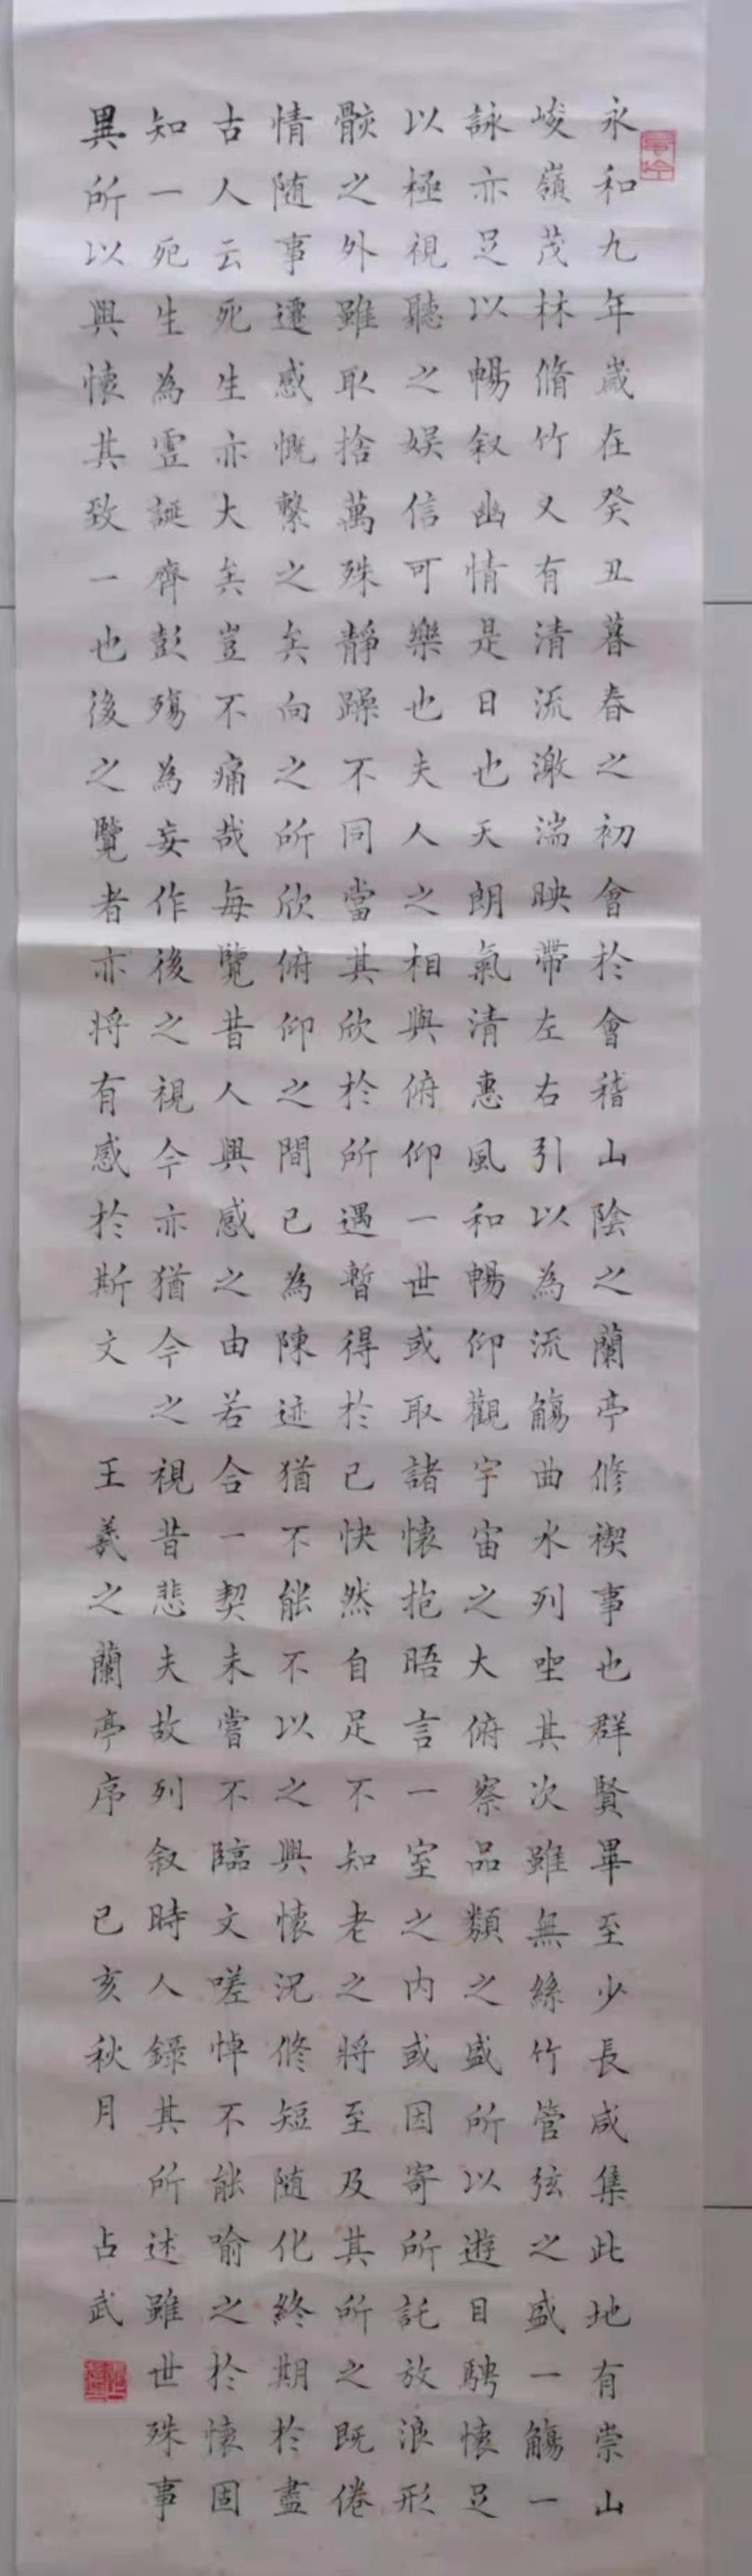 永和九年歲在癸丑暮春之初會於會稽山陰之蘭亭修禊事也群賢畢至少長咸集此地有崇山
峻嶺茂林脩竹又有清流激湍映帶左右引以為流觴曲水列坐其次雖無絲竹管弦之盛一觴一
詠亦足以暢叙幽情是日也天朗氣清惠風和暢仰觀宇宙之大俯察品類之盛所以遊目騁懷足
以極視聽之娛信可樂也夫人之相與俯仰一世或取諸懷抱晤言一室之内或因寄所託放浪形
骸之外雖取捨萬殊靜躁不同當其欣於所遇暫得於己快然自足不知老之將至及其所之既倦
情随事遷感慨繫之矣向之所欣俯仰之間已為陳迹猶不能不以之興懷況修短随化終期於盡
古人云死生亦大矣豈不痛哉每覽昔人興感之由若合一契未嘗不臨文嗟悼不能喻之於懷固
知一死生為虛誕齊彭殤為妄作後之視今亦猶今之視昔悲夫故列叙時人錄其所述雖世殊事
異所以興懷其致一也後之覽者亦將有感於斯文 王羲之蘭亭序 己亥秋月 占武